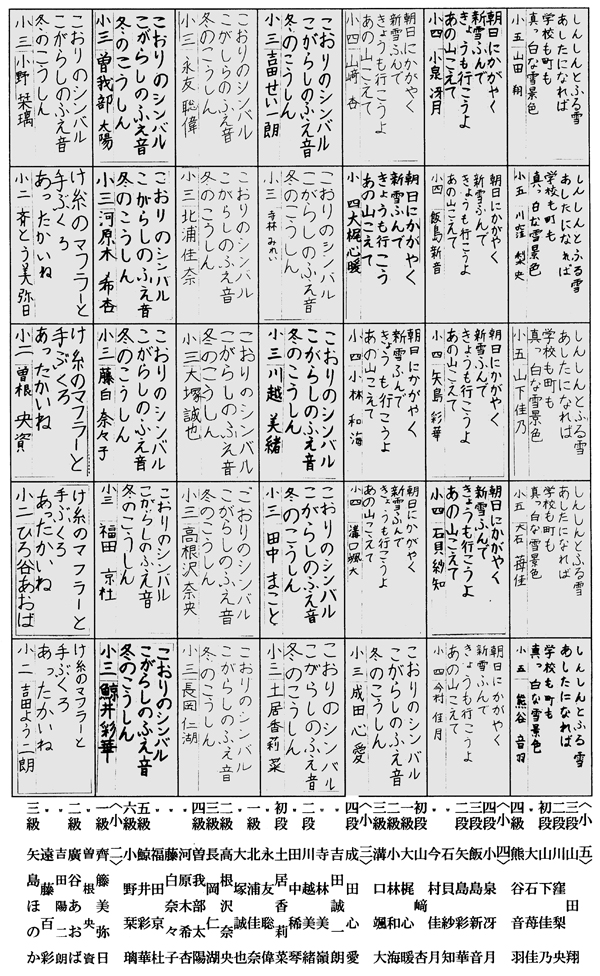 しんしんとふる雪
あしたになれば
学校も町も
真っ白な雪景色
小五 山田 翔
しんしんとふる雪
あしたになれば
学校も町も
真っ白な雪景色
小五 川窪 梨央
しんしんとふる雪
あしたになれば
学校も町も
真っ白な雪景色
小五 山下佳乃
しんしんとふる雪
あしたになれば
学校も町も
真っ白な雪景色
小五 大石 苺佳
しんしんとふる雪
あしたになれば
学校も町も
真っ白な雪景色
小五 熊谷 音羽
朝日にかがやく
新雪ふんで
きょうも行こうよ
あの山こえて
小四 小泉冴月
朝日にかがやく
新雪ふんで
きょうも行こうよ
あの山こえて
小四 飯島新音
朝日にかがやく
新雪ふんで
きょうも行こうよ
あの山こえて
小四 矢島 彩華
朝日にかがやく
新雪ふんで
きょうも行こうよ
あの山こえて
小四 石貝紗知
朝日にかがやく
新雪ふんで
きょうも行こうよ
あの山こえて
小四 今村 佳月
朝日にかがやく
新雪ふんで
きょうも行こうよ
あの山こえて
小四 山﨑 杏
朝日にかがやく
新雪ふんで
きょうも行こう
あの山こえて
小四 大梶心暖
朝日にかがやく
新雪ふんで
きょうも行こうよ
あの山こえて
小四 小林 和海
朝日にかがやく
新雪ふんで
きょうも行こうよ
あの山こえて
小四 溝口颯大
こおりのシンバル
こがらしのふえ音
冬のこうしん
小三 成田 心愛
こおりのシンバル
こがらしのふえ音
冬のこうしん
小三 吉田せい一朗
こおりのシンバル
こがらしのふえ音
冬のこうしん
小三 寺林みれい
こおりのシンバル
こがらしのふえ音
冬のこうしん
小三 川越 美緒
こおりのシンバル
こがらしのふえ音
冬のこうしん
小三 田中 まこと
こおりのシンバル
こがらしのふえ音
冬のこうしん
小三 土居香莉菜
こおりのシンバル
こがらしのふえ音
冬のこうしん
小三 永友 聡偉
こおりのシンバル
こがらしのふえ音
冬のこうしん
小三 北浦佳奈
こおりのシンバル
こがらしのふえ音
冬のこうしん
小三 大塚誠也
こおりのシンバル
こがらしのふえ音
冬のこうしん
小三 高根沢奈央
こおりのシンバル
こがらしのふえ音
冬のこうしん
小三 長岡 仁湖
こおりのシンバル
こがらしのふえ音
冬のこうしん
小三 曽我部 太陽
こおりのシンバル
こがらしのふえ音
冬のこうしん
小三 河原木 希杏
こおりのシンバル
こがらしのふえ音
冬のこうしん
小三 藤白奈々子
こおりのシンバル
こがらしのふえ音
冬のこうしん
小三 福田 京杜
こおりのシンバル
こがらしのふえ音
冬のこうしん
小三 鯨井彩華
こおりのシンバル
こがらしのふえ音
冬のこうしん
小三 小野 栞璃
け糸のマフラーと
手ぶくろ
あったかいね
小二 斉とう美弥日
け糸のマフラーと
手ぶくろ
あったかいね
小二 曽根 央資
け糸のマフラーと
手ぶくろ
あったかいね
小二 ひろ谷あおば
け糸のマフラーと
手ぶくろ
あったかいね
小二 吉田よう二朗
〈小五〉
三段 山田 翔
二段 川窪梨央
初段 山下佳乃
〃 大石苺佳
四級 熊谷音羽
〈小四〉
四段 小泉冴月
三段 飯島新音
二段 矢島彩華
〃 石貝紗知
〃 今村佳月
初段 山﨑 杏
一級 大梶心暖
二級 小林和海
〃 溝口颯大
〈小三〉
四段 成田心愛
〃 吉田誠一朗
〃 寺林美嶺
二段 川越美緒
〃 田中眞琴
初段 土居香莉菜
〃 永友聡偉
一級 北浦佳奈
〃 大塚誠也
二級 高根沢奈央
三級 長岡仁湖
四級 曽我部太陽
〃 河原木希杏
〃 藤白奈々子
〃 福田京杜
五級 鯨井彩華
六級 小野栞璃
〈小二〉
一級 齊籐美弥日
〃 曽根央資
二級 廣谷あおば
〃 吉田陽二朗
〃 遠藤百
三級 矢島ほのか